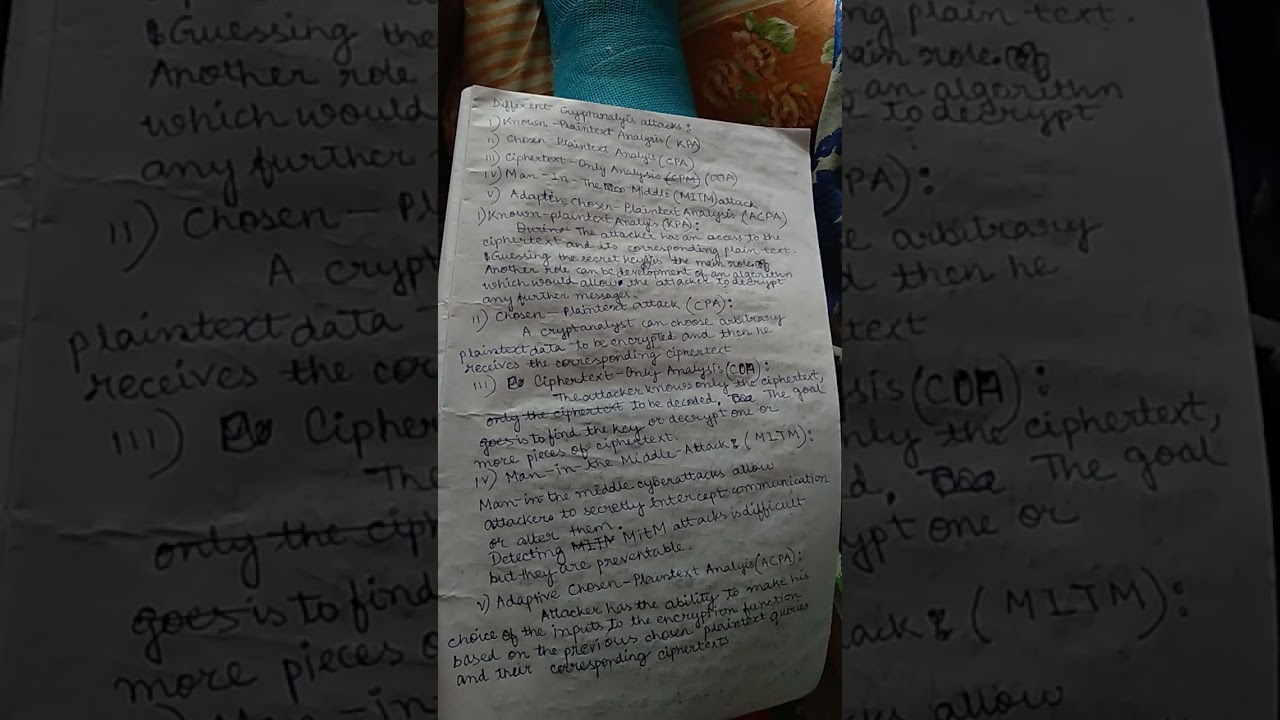 Different Cryptanalyis attacks:
i) Known-Plaintext Analysis (KPA)
ii) Chosen-Plaintext Analysis (CPA)
iii) Ciphertext-Only Analysis (CPM) (COA)
iv) Man-In-The Middle (MITM) attack
v) Adaptive Chosen-Plaintext Analysis (ACPA)
i) Known-plaintext Analysis (KPA):
During The attacker has an access to the
ciphertext and its corresponding plain text.
Guessing the secret key is the main role of
Another role can be development of an algorithm
which would allow the attacker to decrypt
any further messages.
ii) Chosen-Plaintext attack (CPA):
A cryptanalyst can choose arbitrary
plaintext data to be encrypted and then he
receives the corresponding ciphertext
iii) Ciphertext-Only Analysis (COA):
The attacker knows only the ciphertext,
only the ciphertext to be decoded. The goal
goes is to find the key or decrypt one or
more pieces of ciphertext.
iv) Man-in-the Middle-Attack: (MITM):
Man-in the middle cyberattacks allow
attackers to secretly intercept communication
or alter them.
Detecting MITM MitM attacks is difficult
but they are preventable.
v) Adaptive Chosen-Plaintext Analysis (ACPA):
Attacker has the ability to make his
choice of the inputs to the encryption function
based on the previous chosen plaintext queries
and their corresponding ciphertexts